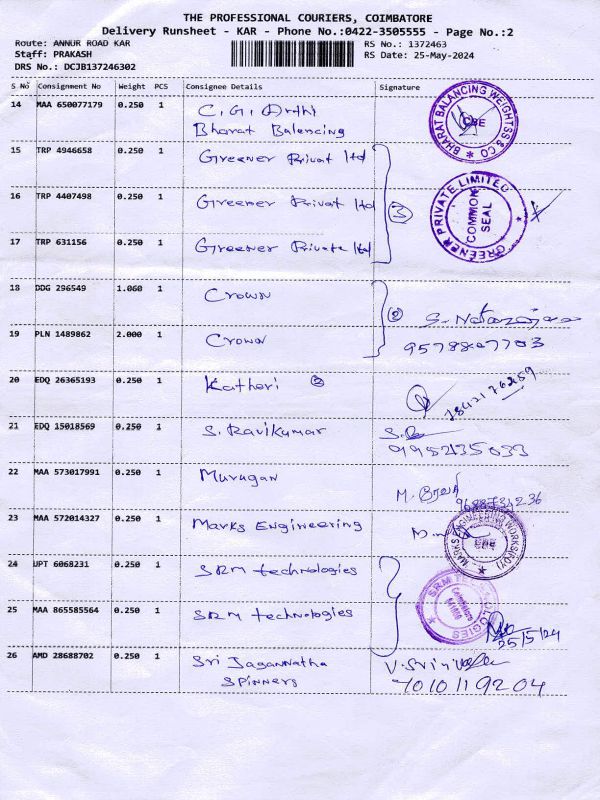 THE PROFESSIONAL COURIERS, COIMBATORE
Delivery Runsheet - KAR - Phone No.:0422-3505555 - Page No.:2
Route: ANNUR ROAD KAR
RS No.: 1372463
Staff: PRAKASH
RS Date: 25-May-2024
DRS No.: DCJB137246302
S No Consignment No Weight PCS Consignee Details Signature
14 MAA 650077179 0.250 1 C.G.Arthi
Bharat Balancing
BHARAT BALANCING WEIGHTSS & CO
CBE
15 TRP 4946658 0.250 1 Greener Privat ltd
16 TRP 4407498 0.250 1 Greener Privat ltd
3
GREENER PRIVATE LIMITED
COMMON
SEAL
17 TRP 631156 0.250 1 Greener Private ltd
18 DDG 296549 1.060 1 Crown
2
19 PLN 1489862 2.000 1 Crown
20 EDQ 26365193 0.250 1 Kathori
21 EDQ 15018569 0.250 1 S. Ravikumar
22 MAA 573017991 0.250 1 Murugan
23 MAA 572014327 0.250 1 Marks Engineering
24 UPT 6068231 0.250 1 SRM technologies
25 MAA 865585564 0.250 1 SRM technologies
25/5/24
26 AMD 28688702 0.250 1 Sri Jagannatha
spinners
7010119204